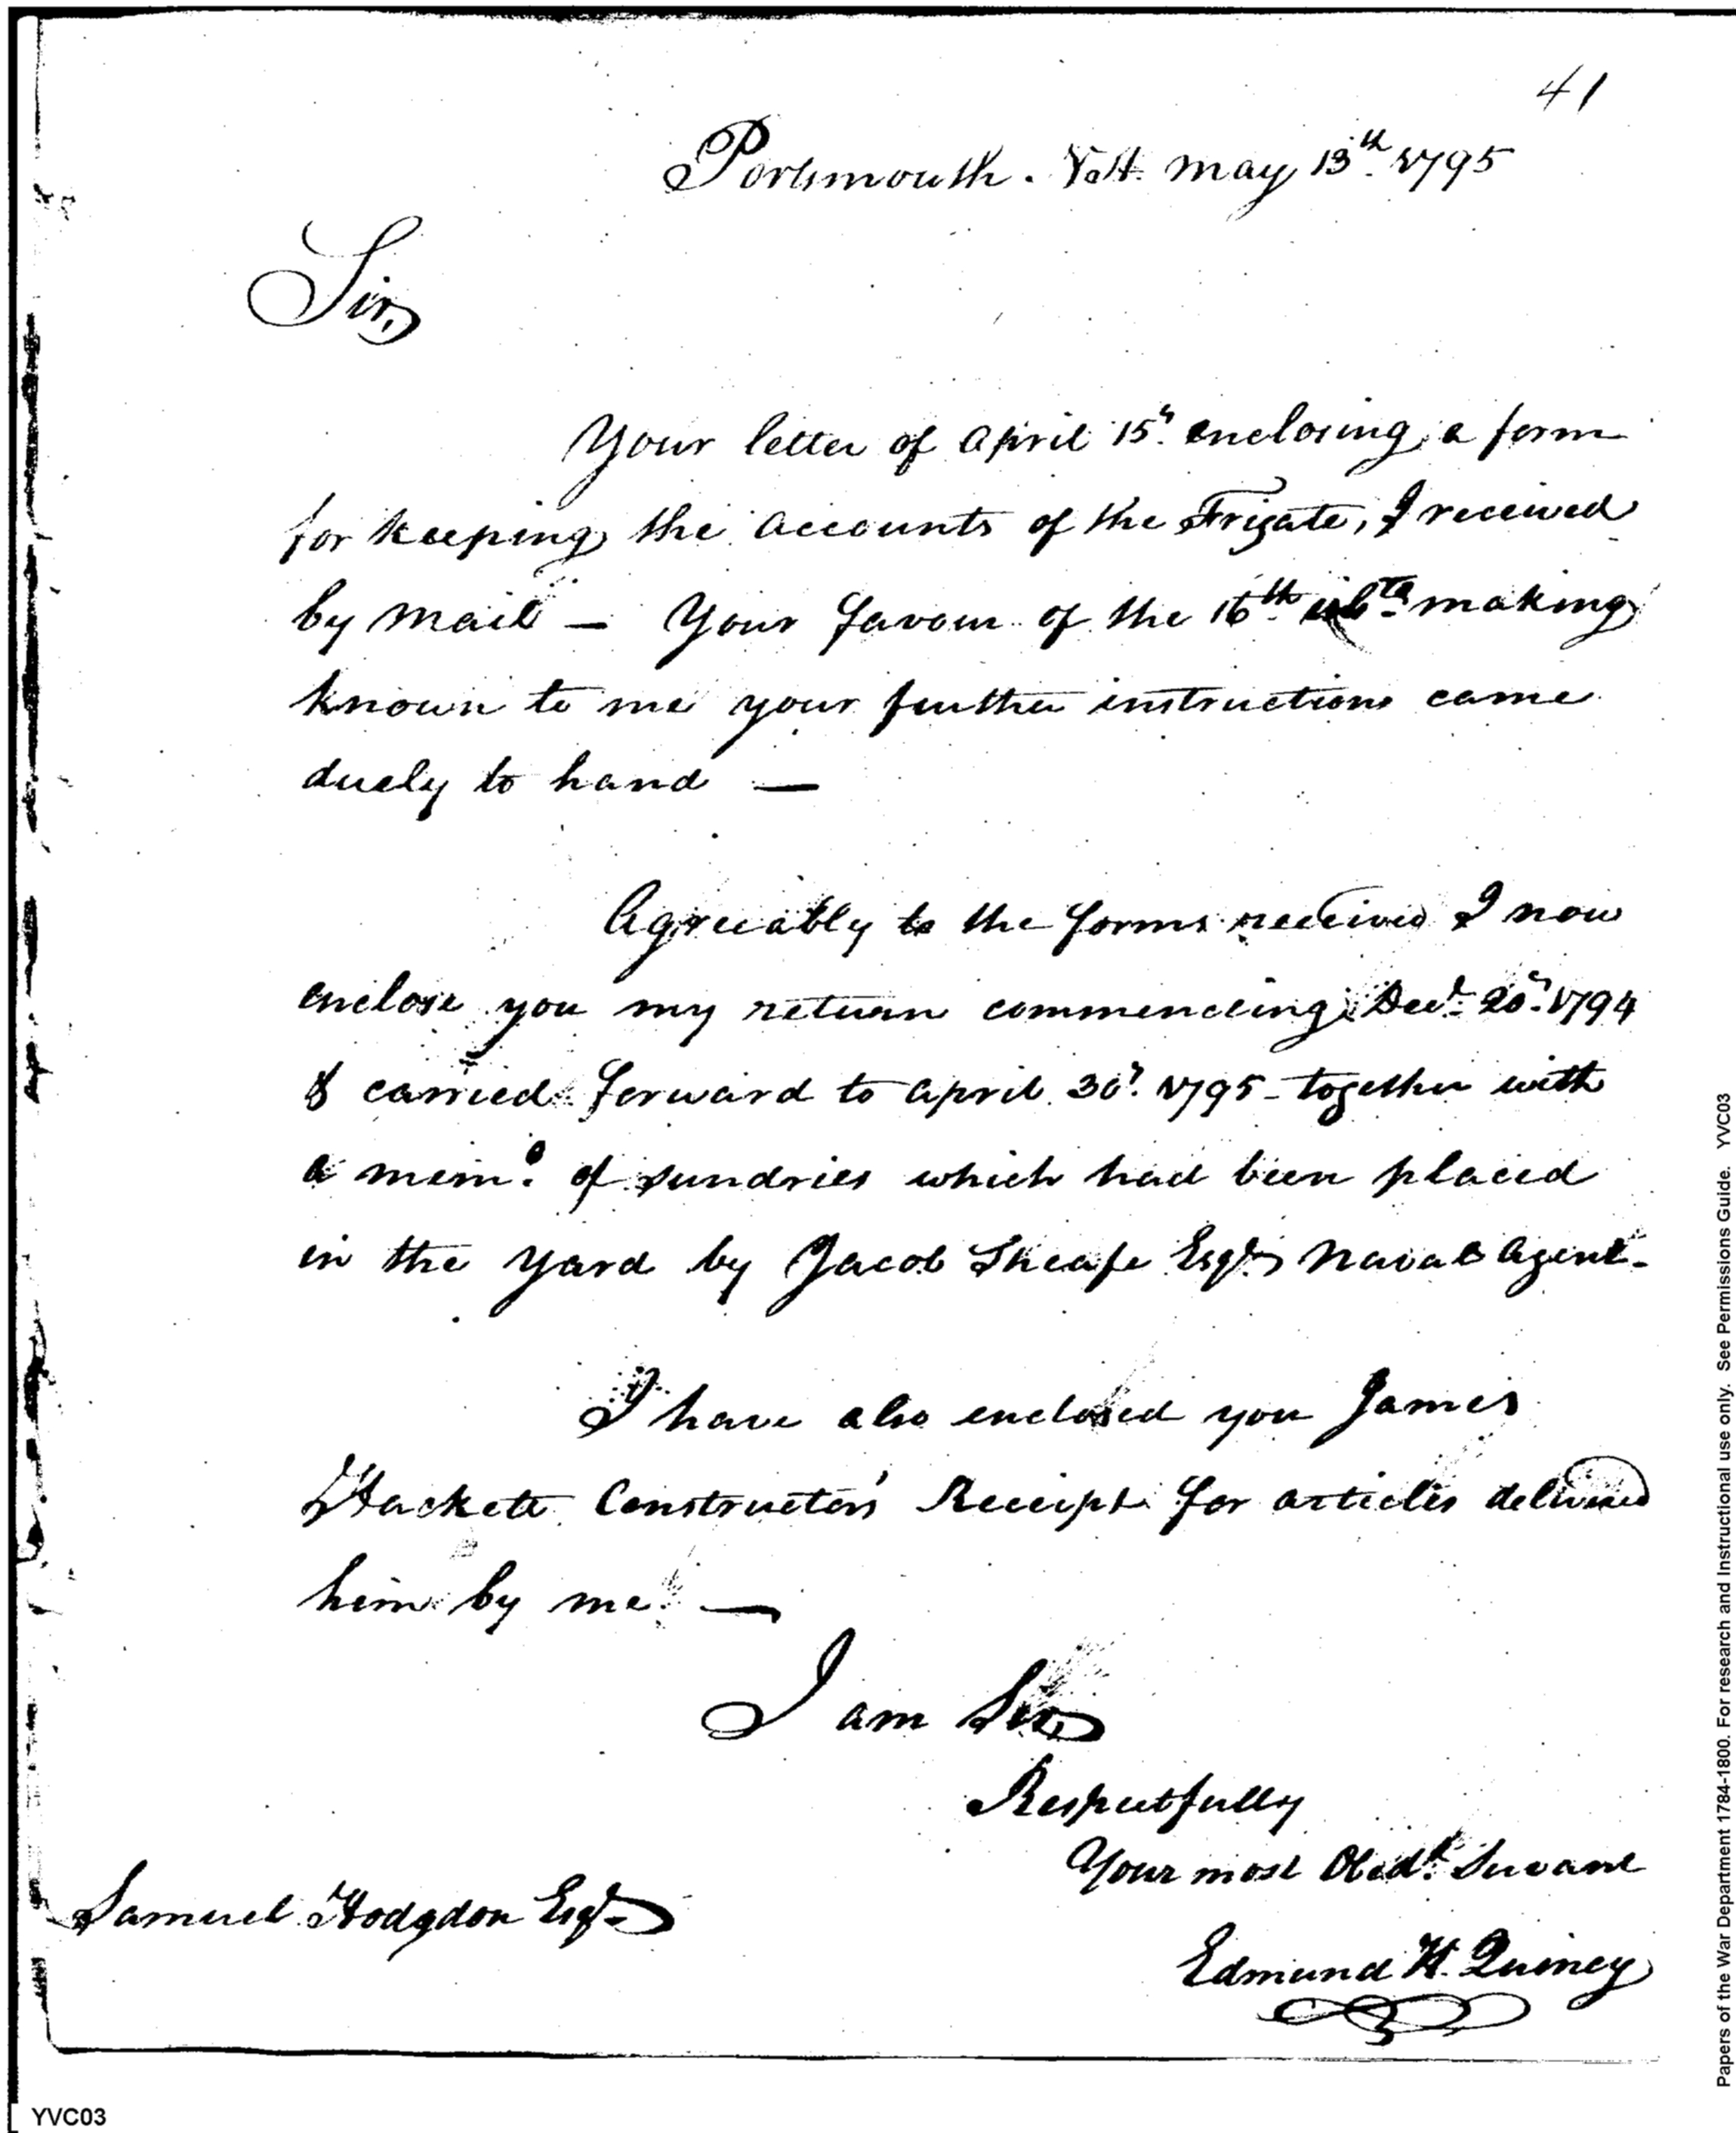 41
Portsmouth. N.H. May 13th. 1795
Sir,
Your letter of April 15th. enclosing a form
for keeping the accounts of the Frigate, I received
by mail — Your favour of the 16th. making
known to me your further instructions came
duely to hand —
Agreeably to the forms received I now
enclose you my return commencing Decr. 20th. 1794
& carried forward to April 30th. 1795 - together with
a memo. of sundries which had been placed
in the Yard by Jacob Sheafe Esqr. Naval Agent.-
I have also enclosed you James
Hackett Constructors' Receipt for articles delivered
him by me. —
I am Sir,
Respectfully
Your most Obedt. Servant
Samuel Hodgdon Esqr.
Edmund H. Quincy
YVC03
Papers of the War Department 1784-1800. For research and instructional use only. See Permissions Guide. YVC03